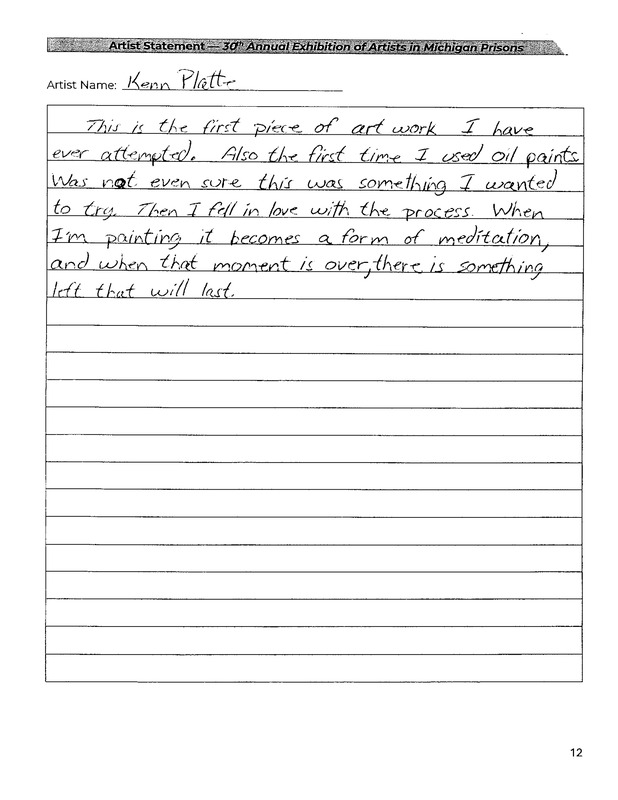 Artist Statement — 30th Annual Exhibition of Artists in Michigan Prisons
Artist Name: Kenn Platte
This is the first piece of art work I have
ever attempted. Also the first time I used oil paints
Was not even sure this was something I wanted
to try. Then I fell in love with the process. When
I'm painting it becomes a form of meditation,
and when that moment is over, there is something
left that will last.
12